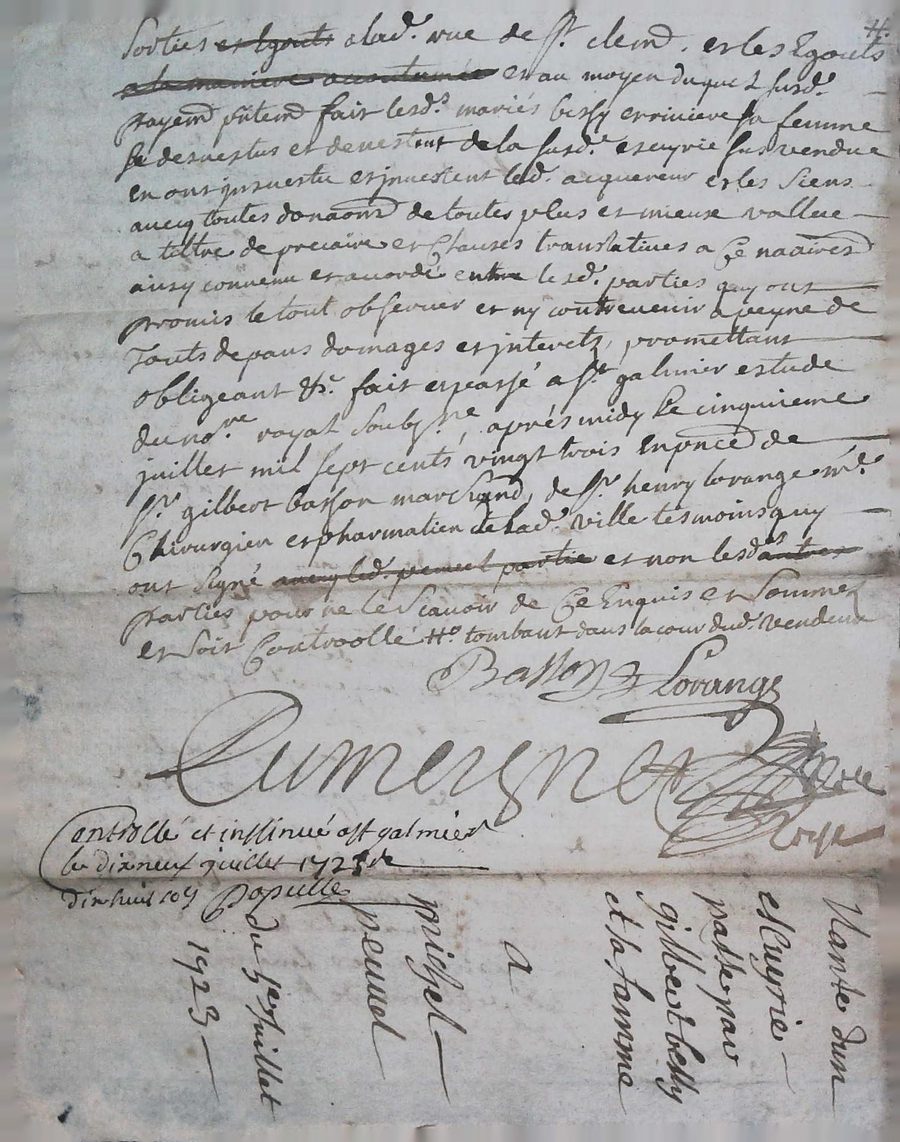 Sorties es Egouts a lad.e rue de St. clemd. et les Egouts H.
a la maniere acoutumée et au moyen duquel susd.
payemd pntemd fait lesd.s mariés bessy et riviere sa femme
se desvestus et devestent de la susd.e escuyrie sus vendue
en ont jnvestu et jnvestent led. acquereur et les siens
avecq toutes donaons de toutes plus et mieux vallue
a tiltre de precaire et Clauses translatives a Ce necaires
ainsy convenu et accordé entre lesd. parties quy ont
promis le tout observer et ny contrevenir a peyne de
Touts depans domages et jnterets, promettant
obligeant &c. fait et passé a St galmier estude
du no.re royal soubz.né, aprés midy Le cinquieme
juillet mil sept cents vingt trois En pnce de
Sr. gilbert basson marchand, de Sr. henry lorange me.
Chirurgien et pharmatien de lad.e ville tesmoins quy
ont signé avecq led. peurel partie et non lesd. autres
parties pour ne le Scavoir de Ce Enquis et Sommés
et soit Controollé H.o tombant dans la cour dud. vendeur
Basson Lorange
Controllé et insinué a st galmier
le dix neuf juillet 1723 Re
dix huit sols Populle
Vante dun
escuyrie
passé par
gilbert bessy
et sa famme
a
michel
peurel
du 5e Juillet
1723